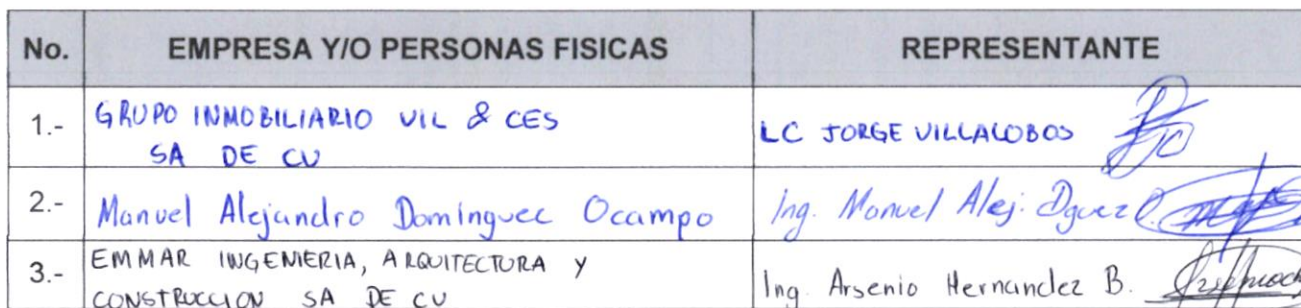 No. EMPRESA Y/O PERSONAS FISICAS REPRESENTANTE
1.- GRUPO INMOBILIARIO VIL & CES LC JORGE VILLALOBOS
SA DE CV
2.- Manuel Alejandro Dominguez Ocampo Ing. Manuel Alej. Dguez O.
3.- EMMAR INGENIERIA, ARQUITECTURA Y Ing. Arsenio Hernandez B.
CONSTRUCCION SA DE CV